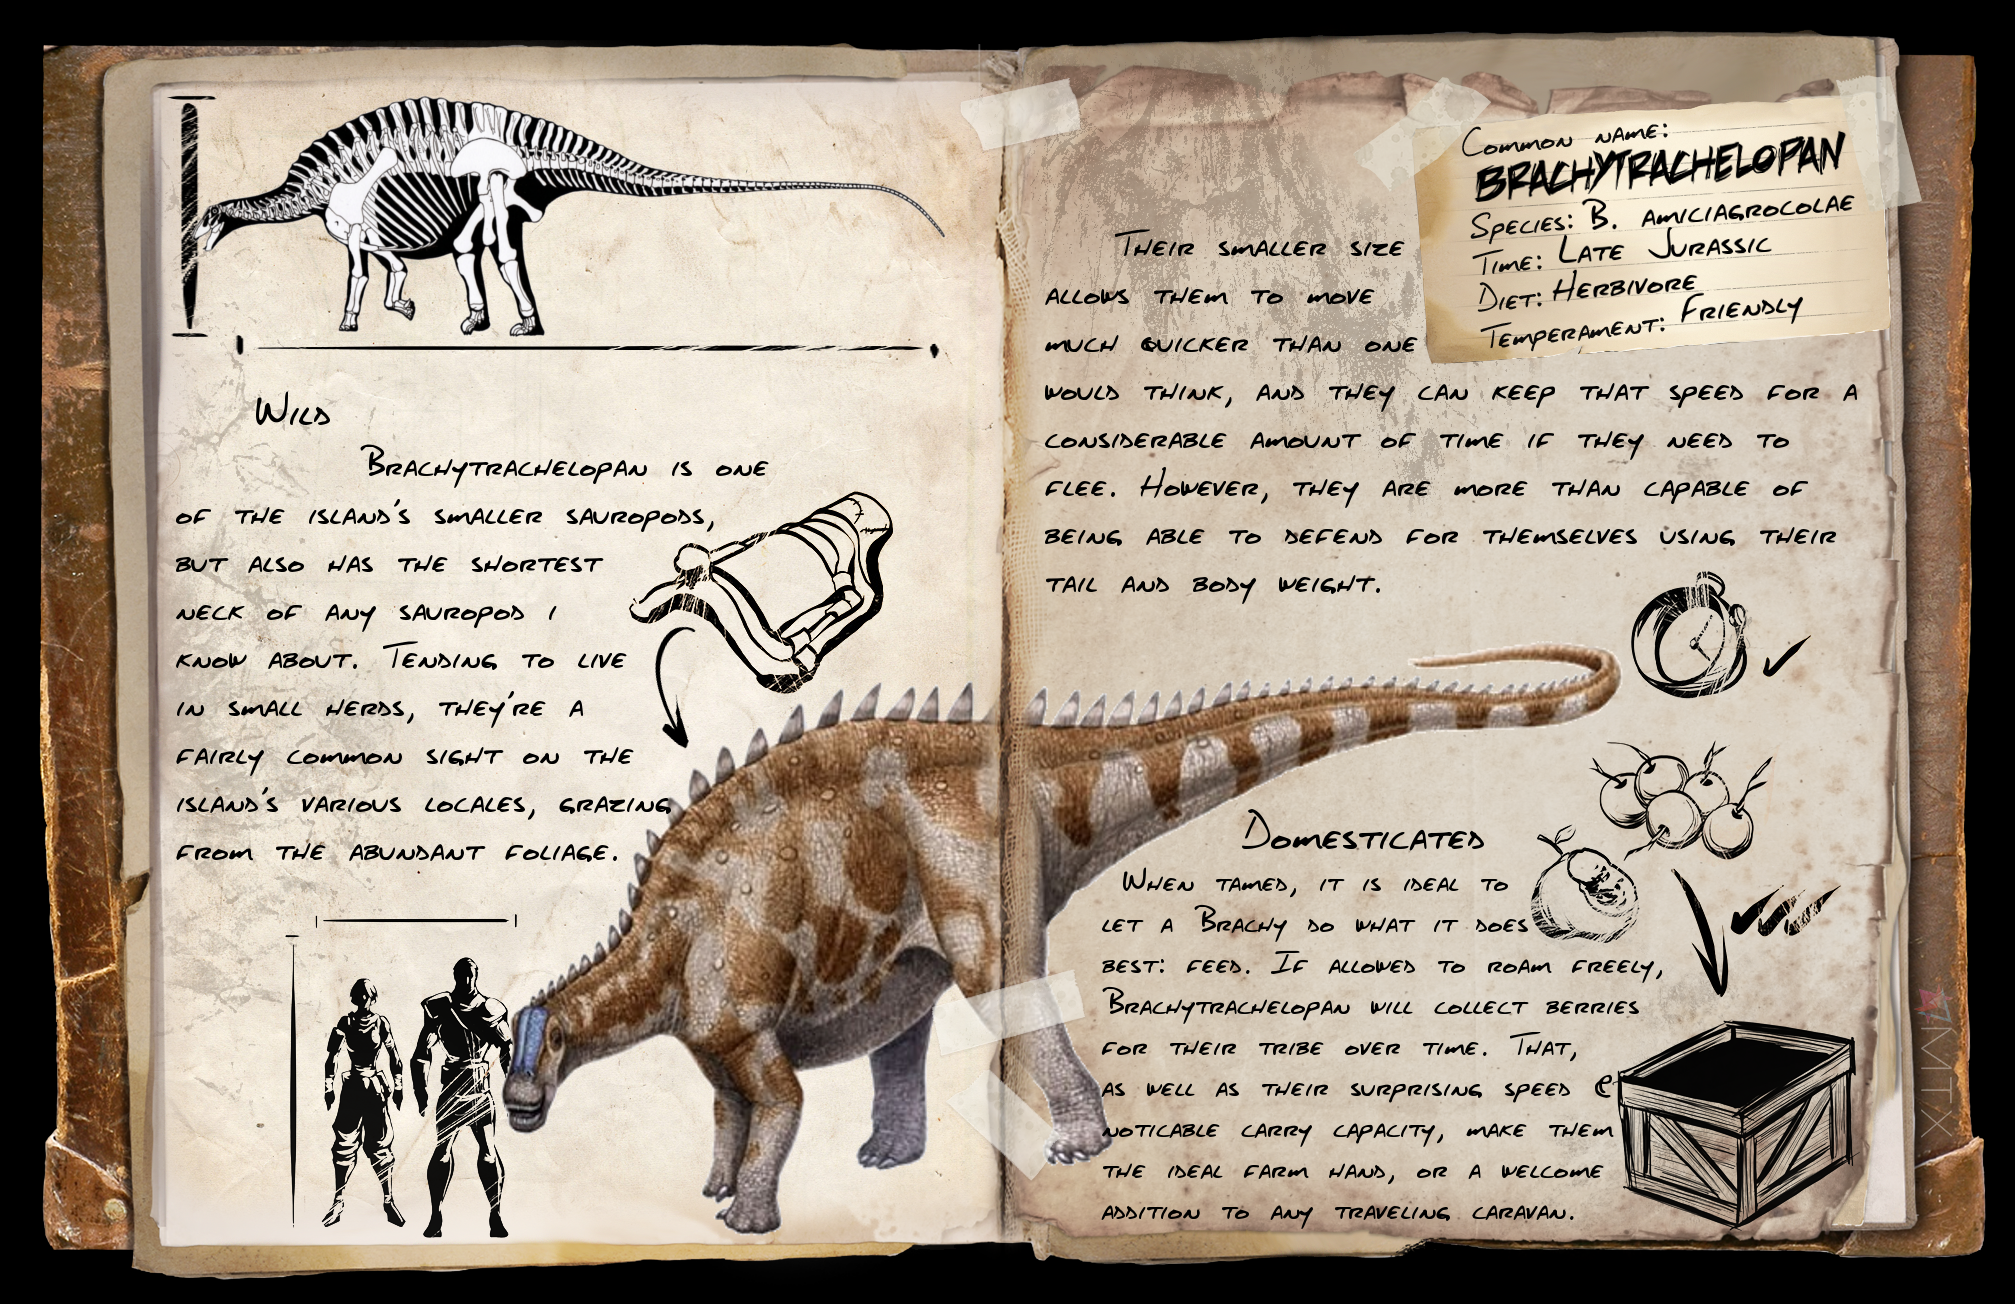 Wild
Brachytrachelopan is one
of the island's smaller sauropods,
but also has the shortest
neck of any sauropod I
know about. Tending to live
in small herds, they're a
fairly common sight on the
island's various locales, grazing
from the abundant foliage.
Common name:
BRACHYTRACHELOPAN
Species: B. amiciagrocolae
Time: Late Jurassic
Diet: Herbivore
Temperament: Friendly
Their smaller size
allows them to move
much quicker than one
would think, and they can keep that speed for a
considerable amount of time if they need to
flee. However, they are more than capable of
being able to defend for themselves using their
tail and body weight.
Domesticated
When tamed, it is ideal to
let a Brachy do what it does
best: feed. If allowed to roam freely,
Brachytrachelopan will collect berries
for their tribe over time. That,
as well as their surprising speed @
noticable carry capacity, make them
the ideal farm hand, or a wellcome
addition to any traveling caravan.
MTX